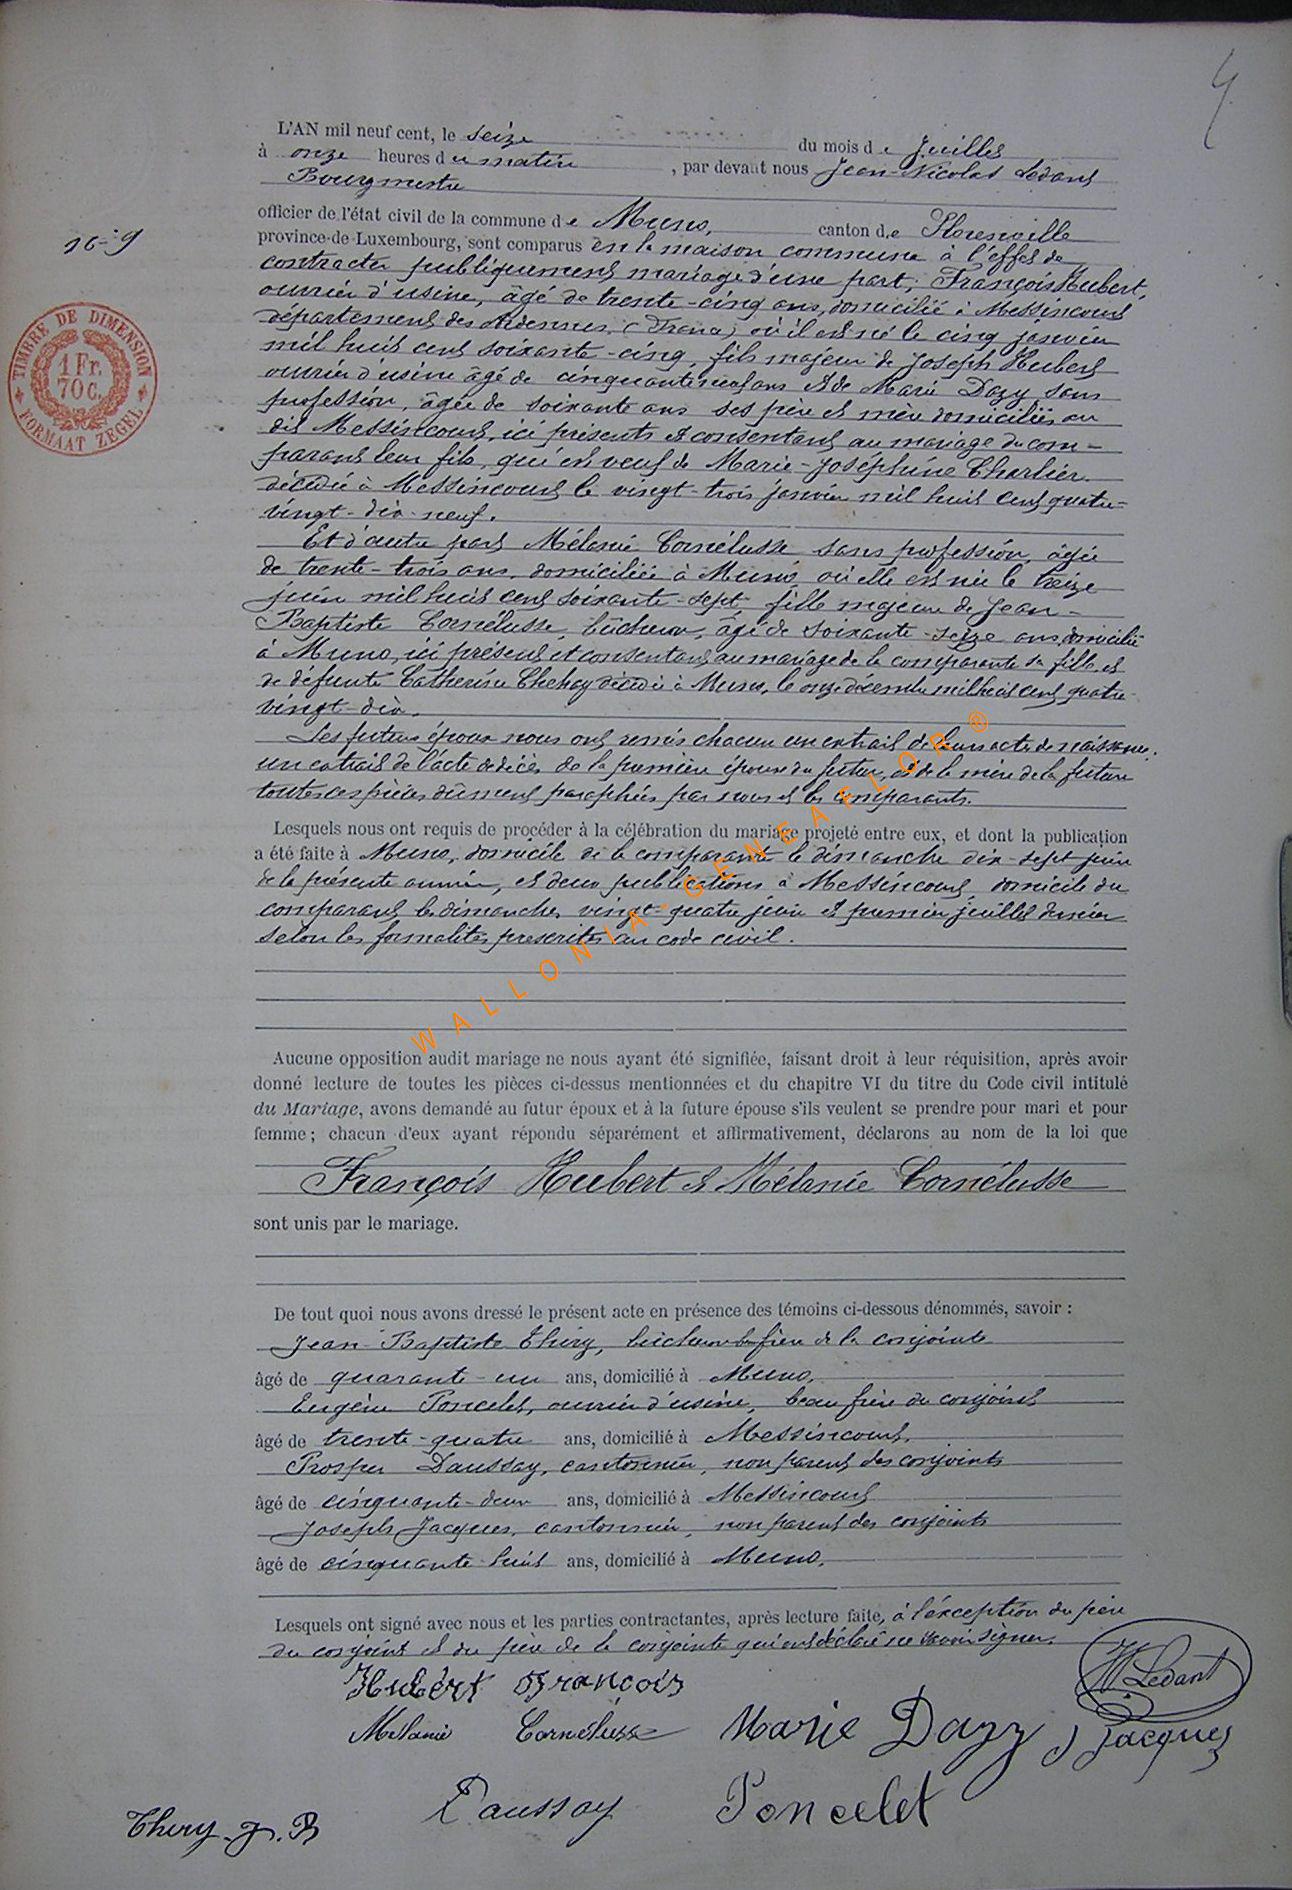 4
L'AN mil neuf cent, le seize du mois de Juillet
à onze heures du matin, par devant nous Jean-Nicolas Ledant
Bourgmestre
officier de l'état civil de la commune de Muno, canton de Florenville
province de Luxembourg, sont comparus en la maison commune à l'effet de
contracter publiquement mariage d'une part, François Hubert,
ouvrier d'usine, âgé de trente-cinq ans, domicilié à Messincourt
département des Ardennes, (France) où il est né le cinq janvier
mil huit cent soixante-cinq, fils majeur de Joseph Hubert
ouvrier d'usine âgé de cinquante neuf ans et de Marie Dazy sans
profession, âgée de soixante ans ses père et mère domiciliés au
dit Messincourt, ici présents et consentant au mariage du com-
parant leur fils, qui est veuf de Marie-Joséphine Charlier
décédée à Messincourt le vingt-trois janvier mil huit cent quatre-
vingt-dix-neuf.
Et d'autre part Mélanie Cornélusse sans profession, âgée
de trente-trois ans, domiciliée à Muno où elle est née le treize
juin mil huit cent soixante-sept, fille majeure de Jean-
Baptiste Cornélusse, bûcheron, âgé de soixante-seize ans, domicilié
à Muno, ici présent et consentant au mariage de la comparante sa fille et
de défunte Catherine décédée à Muno, le onze décembre mil huit cent quatre-
vingt-dix.
Les futurs époux nous ont remis chacun un extrait de leur acte de naissance,
un extrait de l'acte de décès de la première épouse du futur, et de la mère de la future
toutes ces pièces dûment paraphées par nous et les comparants.
Lesquels nous ont requis de procéder à la célébration du mariage projeté entre eux, et dont la publication
a été faite à Muno, domicile de la comparante le dimanche dix-sept juin
de la présente année, et deux publications à Messincourt, domicile du
comparant les dimanches vingt-quatre juin et premier juillet dernier
selon les formalités prescrites au code civil.
Aucune opposition audit mariage ne nous ayant été signifiée, faisant droit à leur réquisition, après avoir
donné lecture de toutes les pièces ci-dessus mentionnées et du chapitre VI du titre du Code civil intitulé
du Mariage, avons demandé au futur époux et à la future épouse s'ils veulent se prendre pour mari et pour
femme ; chacun d'eux ayant répondu séparément et affirmativement, déclarons au nom de la loi que
François Hubert et Mélanie Cornélusse
sont unis par le mariage.
De tout quoi nous avons dressé le présent acte en présence des témoins ci-dessous dénommés, savoir :
Jean-Baptiste Thiry, bûcheron frère de la conjointe
âgé de quarante-un ans, domicilié à Muno,
Eugène Poncelet, ouvrier d'usine, beau frère du conjoint
âgé de trente-quatre ans, domicilié à Messincourt.
Prosper Daussay, cantonnier, non parent des conjoints
âgé de cinquante-deux ans, domicilié à Messincourt
Joseph Jacques, cantonnier, non parent des conjoints
âgé de cinquante-huit ans, domicilié à Muno.
Lesquels ont signé avec nous et les parties contractantes, après lecture faite, à l'exception du père
du conjoint et du père de la conjointe qui ont déclaré ne savoir signer.
Hubert François
Ledant
Mélanie Cornélusse
Marie Dazy
J Jacques
Daussay
Poncelet
Thiry J. B
TIMBRE DE DIMENSION
1 Fr.
70 C.
FORMAAT ZEGEL
WALLONIA-GENEAFLOR ®